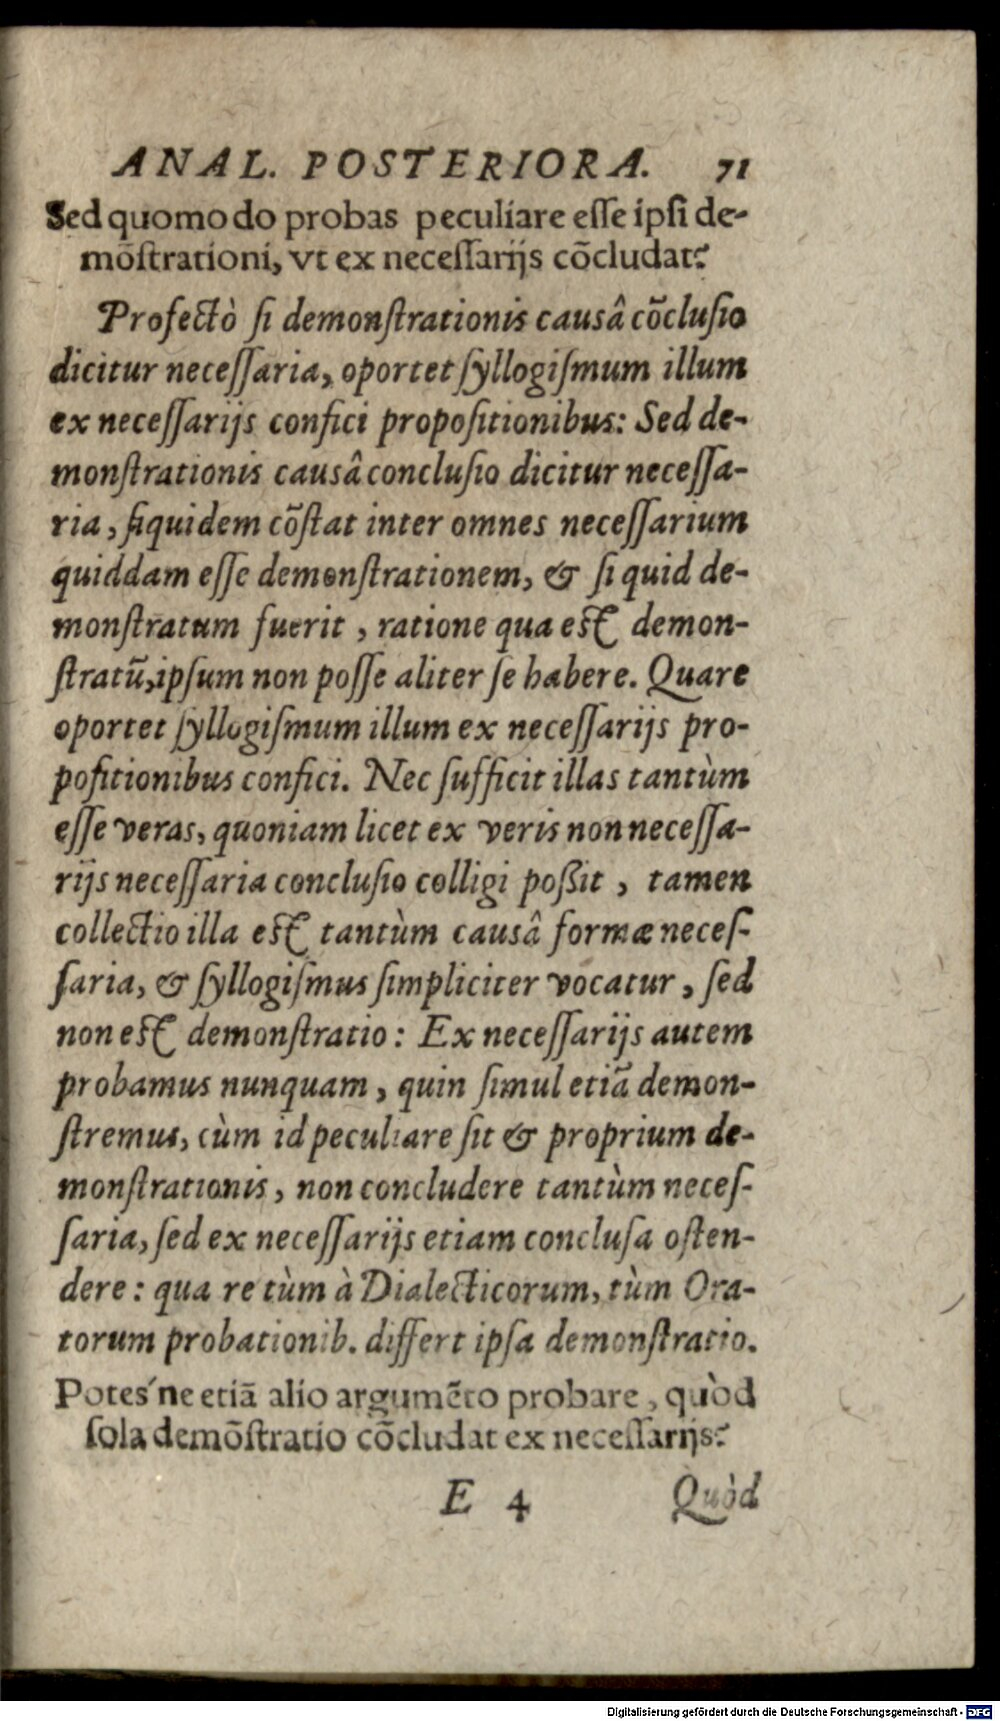 ANAL. POSTERIORA. 71
Sed quomodo probas peculiare esse ipsi de-
mõstrationi, vt ex necessarijs cõcludat?
Profectò si demonstrationis causâ cõclusio
dicitur necessaria, oportet syllogismum illum
ex necessarijs confici propositionibus: Sed de-
monstrationis causâ conclusio dicitur necessa-
ria, siquidem cõstat inter omnes necessarium
quiddam esse demonstrationem, & si quid de-
monstratum fuerit, ratione qua est demon-
stratũ, ipsum non posse aliter se habere. Quare
oportet syllogismum illum ex necessarijs pro-
positionibus confici. Nec sufficit illas tantùm
esse veras, quoniam licet ex veris non necessa-
rijs necessaria conclusio colligi poßit, tamen
collectio illa est tantùm causâ formæ neces-
saria, & syllogismus simpliciter vocatur, sed
non est demonstratio: Ex necessarijs autem
probamus nunquam, quin simul etiã demon-
stremus, cùm id peculiare sit & proprium de-
monstrationis, non concludere tantùm neces-
saria, sed ex necessarijs etiam conclusa osten-
dere: qua re tùm à Dialecticorum, tùm Ora-
torum probationib. differt ipsa demonstratio.
Potes'ne etiã alio argumẽto probare, quòd
sola demõstratio cõcludat ex necessarijs?
E 4 Quòd
Digitalisierung gefördert durch die Deutsche Forschungsgemeinschaft - DFG